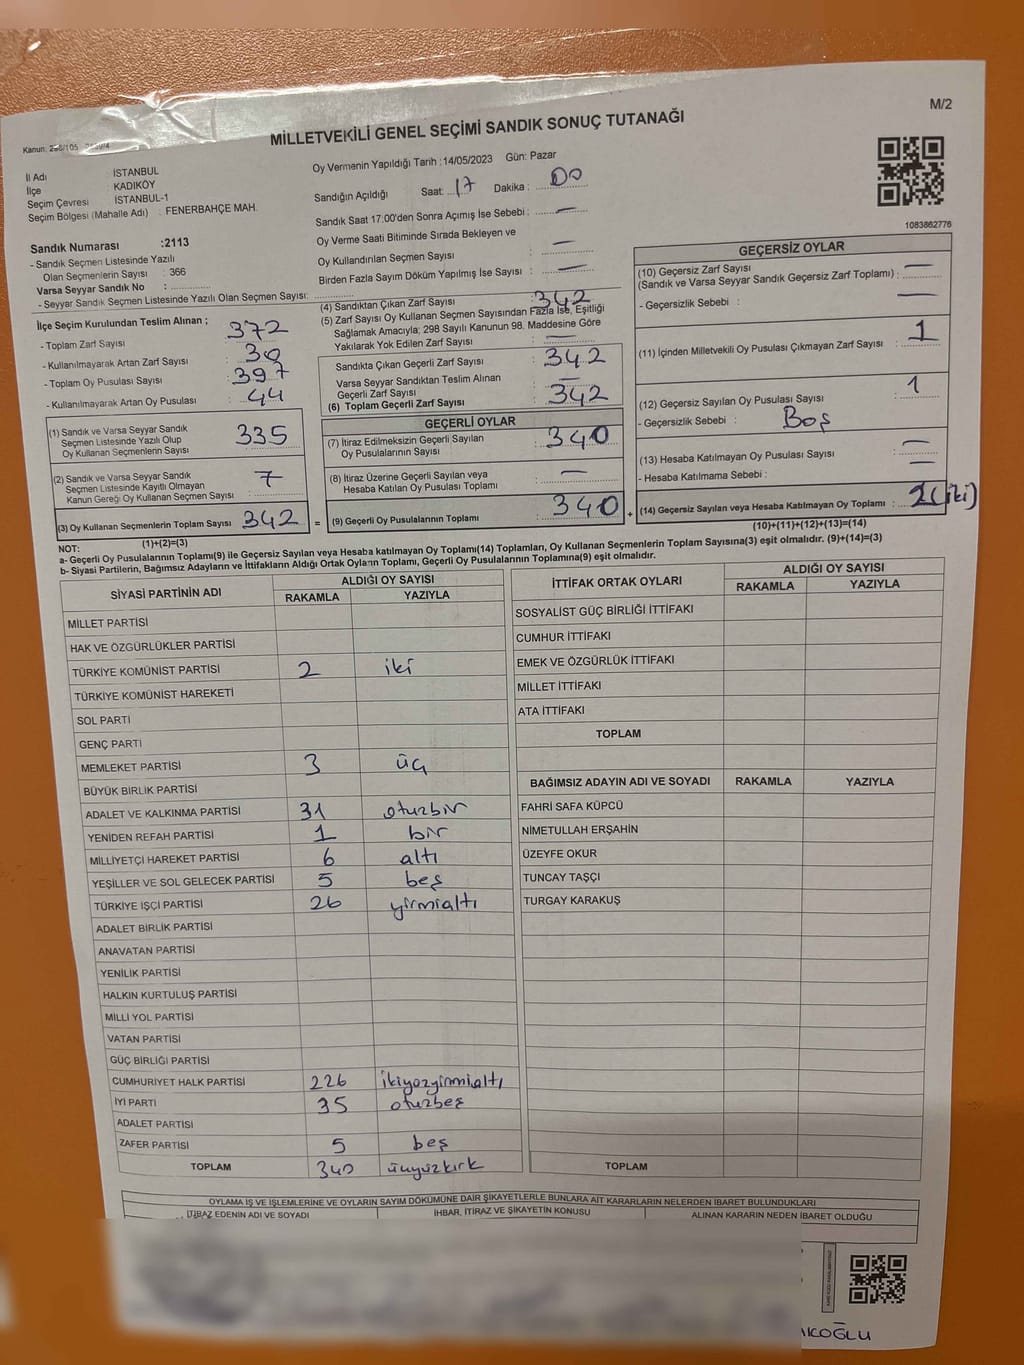 M/2
MİLLETVEKİLİ GENEL SEÇİMİ SANDIK SONUÇ TUTANAĞI
Kanun:
İl Adı : İSTANBUL
İlçe : KADIKÖY
Seçim Çevresi : İSTANBUL-1
Seçim Bölgesi (Mahalle Adı) : FENERBAHÇE MAH.
Sandık Numarası :2113
- Sandık Seçmen Listesinde Yazılı
Olan Seçmenlerin Sayısı : 366
Varsa Seyyar Sandık No :
- Seyyar Sandık Seçmen Listesinde Yazılı Olan Seçmen Sayısı:
Oy Vermenin Yapıldığı Tarih :14/05/2023 Gün: Pazar
Sandığın Açıldığı Saat: 17 Dakika : 00
Sandık Saat 17:00'den Sonra Açımış İse Sebebi : —
Oy Verme Saati Bitiminde Sırada Bekleyen ve
Oy Kullandırılan Seçmen Sayısı : —
Birden Fazla Sayım Döküm Yapılmış İse Sayısı : —
1083862776
İlçe Seçim Kurulundan Teslim Alınan ;
- Toplam Zarf Sayısı : 372
- Kullanılmayarak Artan Zarf Sayısı : 30
- Toplam Oy Pusulası Sayısı : 397
- Kullanılmayarak Artan Oy Pusulası : 44
(1) Sandık ve Varsa Seyyar Sandık
Seçmen Listesinde Yazılı Olup
Oy Kullanan Seçmenlerin Sayısı : 335
(2) Sandık ve Varsa Seyyar Sandık
Seçmen Listesinde Kayıtlı Olmayan
Kanun Gereği Oy Kullanan Seçmen Sayısı : 7
(3) Oy Kullanan Seçmenlerin Toplam Sayısı 342
(1)+(2)=(3)
(4) Sandıktan Çıkan Zarf Sayısı : 342
(5) Zarf Sayısı Oy Kullanan Seçmen Sayısından Fazla İse, Eşitliği
Sağlamak Amacıyla; 298 Sayılı Kanunun 98. Maddesine Göre
Yakılarak Yok Edilen Zarf Sayısı : —
Sandıkta Çıkan Geçerli Zarf Sayısı : 342
Varsa Seyyar Sandıktan Teslim Alınan
Geçerli Zarf Sayısı : —
(6) Toplam Geçerli Zarf Sayısı : 342
GEÇERLİ OYLAR
(7) İtiraz Edilmeksizin Geçerli Sayılan
Oy Pusulalarının Sayısı : 340
(8) İtiraz Üzerine Geçerli Sayılan veya
Hesaba Katılan Oy Pusulası Toplamı : —
= (9) Geçerli Oy Pusulalarının Toplamı : 340 +
GEÇERSİZ OYLAR
(10) Geçersiz Zarf Sayısı
(Sandık ve Varsa Seyyar Sandık Geçersiz Zarf Toplamı) : —
- Geçersizlik Sebebi : —
(11) İçinden Milletvekili Oy Pusulası Çıkmayan Zarf Sayısı : 1
(12) Geçersiz Sayılan Oy Pusulası Sayısı : 1
- Geçersizlik Sebebi : Boş
(13) Hesaba Katılmayan Oy Pusulası Sayısı : —
- Hesaba Katılmama Sebebi : —
(14) Geçersiz Sayılan veya Hesaba Katılmayan Oy Toplamı : 2 (iki)
(10)+(11)+(12)+(13)=(14)
NOT:
a- Geçerli Oy Pusulalarının Toplamı(9) ile Geçersiz Sayılan veya Hesaba katılmayan Oy Toplamı(14) Toplamları, Oy Kullanan Seçmenlerin Toplam Sayısına(3) eşit olmalıdır. (9)+(14)=(3)
b- Siyasi Partilerin, Bağımsız Adayların ve İttifakların Aldığı Ortak Oyların Toplamı, Geçerli Oy Pusulalarının Toplamına(9) eşit olmalıdır.
SİYASİ PARTİNİN ADI ALDIĞI OY SAYISI
RAKAMLA YAZIYLA
MİLLET PARTİSİ
HAK VE ÖZGÜRLÜKLER PARTİSİ
TÜRKİYE KOMÜNİST PARTİSİ 2 iki
TÜRKİYE KOMÜNİST HAREKETİ
SOL PARTİ
GENÇ PARTİ
MEMLEKET PARTİSİ 3 üç
BÜYÜK BİRLİK PARTİSİ
ADALET VE KALKINMA PARTİSİ 31 otuzbir
YENİDEN REFAH PARTİSİ 1 bir
MİLLİYETÇİ HAREKET PARTİSİ 6 altı
YEŞİLLER VE SOL GELECEK PARTİSİ 5 beş
TÜRKİYE İŞÇİ PARTİSİ 26 yirmialtı
ADALET BİRLİK PARTİSİ
ANAVATAN PARTİSİ
YENİLİK PARTİSİ
HALKIN KURTULUŞ PARTİSİ
MİLLİ YOL PARTİSİ
VATAN PARTİSİ
GÜÇ BİRLİĞİ PARTİSİ
CUMHURİYET HALK PARTİSİ 226 ikiyüzyirmialtı
İYİ PARTİ 35 otuzbeş
ADALET PARTİSİ
ZAFER PARTİSİ 5 beş
TOPLAM 340 üçyüzkırk
İTTİFAK ORTAK OYLARI ALDIĞI OY SAYISI
RAKAMLA YAZIYLA
SOSYALİST GÜÇ BİRLİĞİ İTTİFAKI
CUMHUR İTTİFAKI
EMEK VE ÖZGÜRLÜK İTTİFAKI
MİLLET İTTİFAKI
ATA İTTİFAKI
TOPLAM
BAĞIMSIZ ADAYIN ADI VE SOYADI RAKAMLA YAZIYLA
FAHRİ SAFA KÜPCÜ
NİMETULLAH ERŞAHİN
ÜZEYFE OKUR
TUNCAY TAŞÇI
TURGAY KARAKUŞ
TOPLAM
OYLAMA İŞ VE İŞLEMLERİNE VE OYLARIN SAYIM DÖKÜMÜNE DAİR ŞİKAYETLERLE BUNLARA AİT KARARLARIN NELERDEN İBARET BULUNDUKLARI
İTİRAZ EDENİN ADI VE SOYADI İHBAR, İTİRAZ VE ŞİKAYETİN KONUSU ALINAN KARARIN NEDEN İBARET OLDUĞU